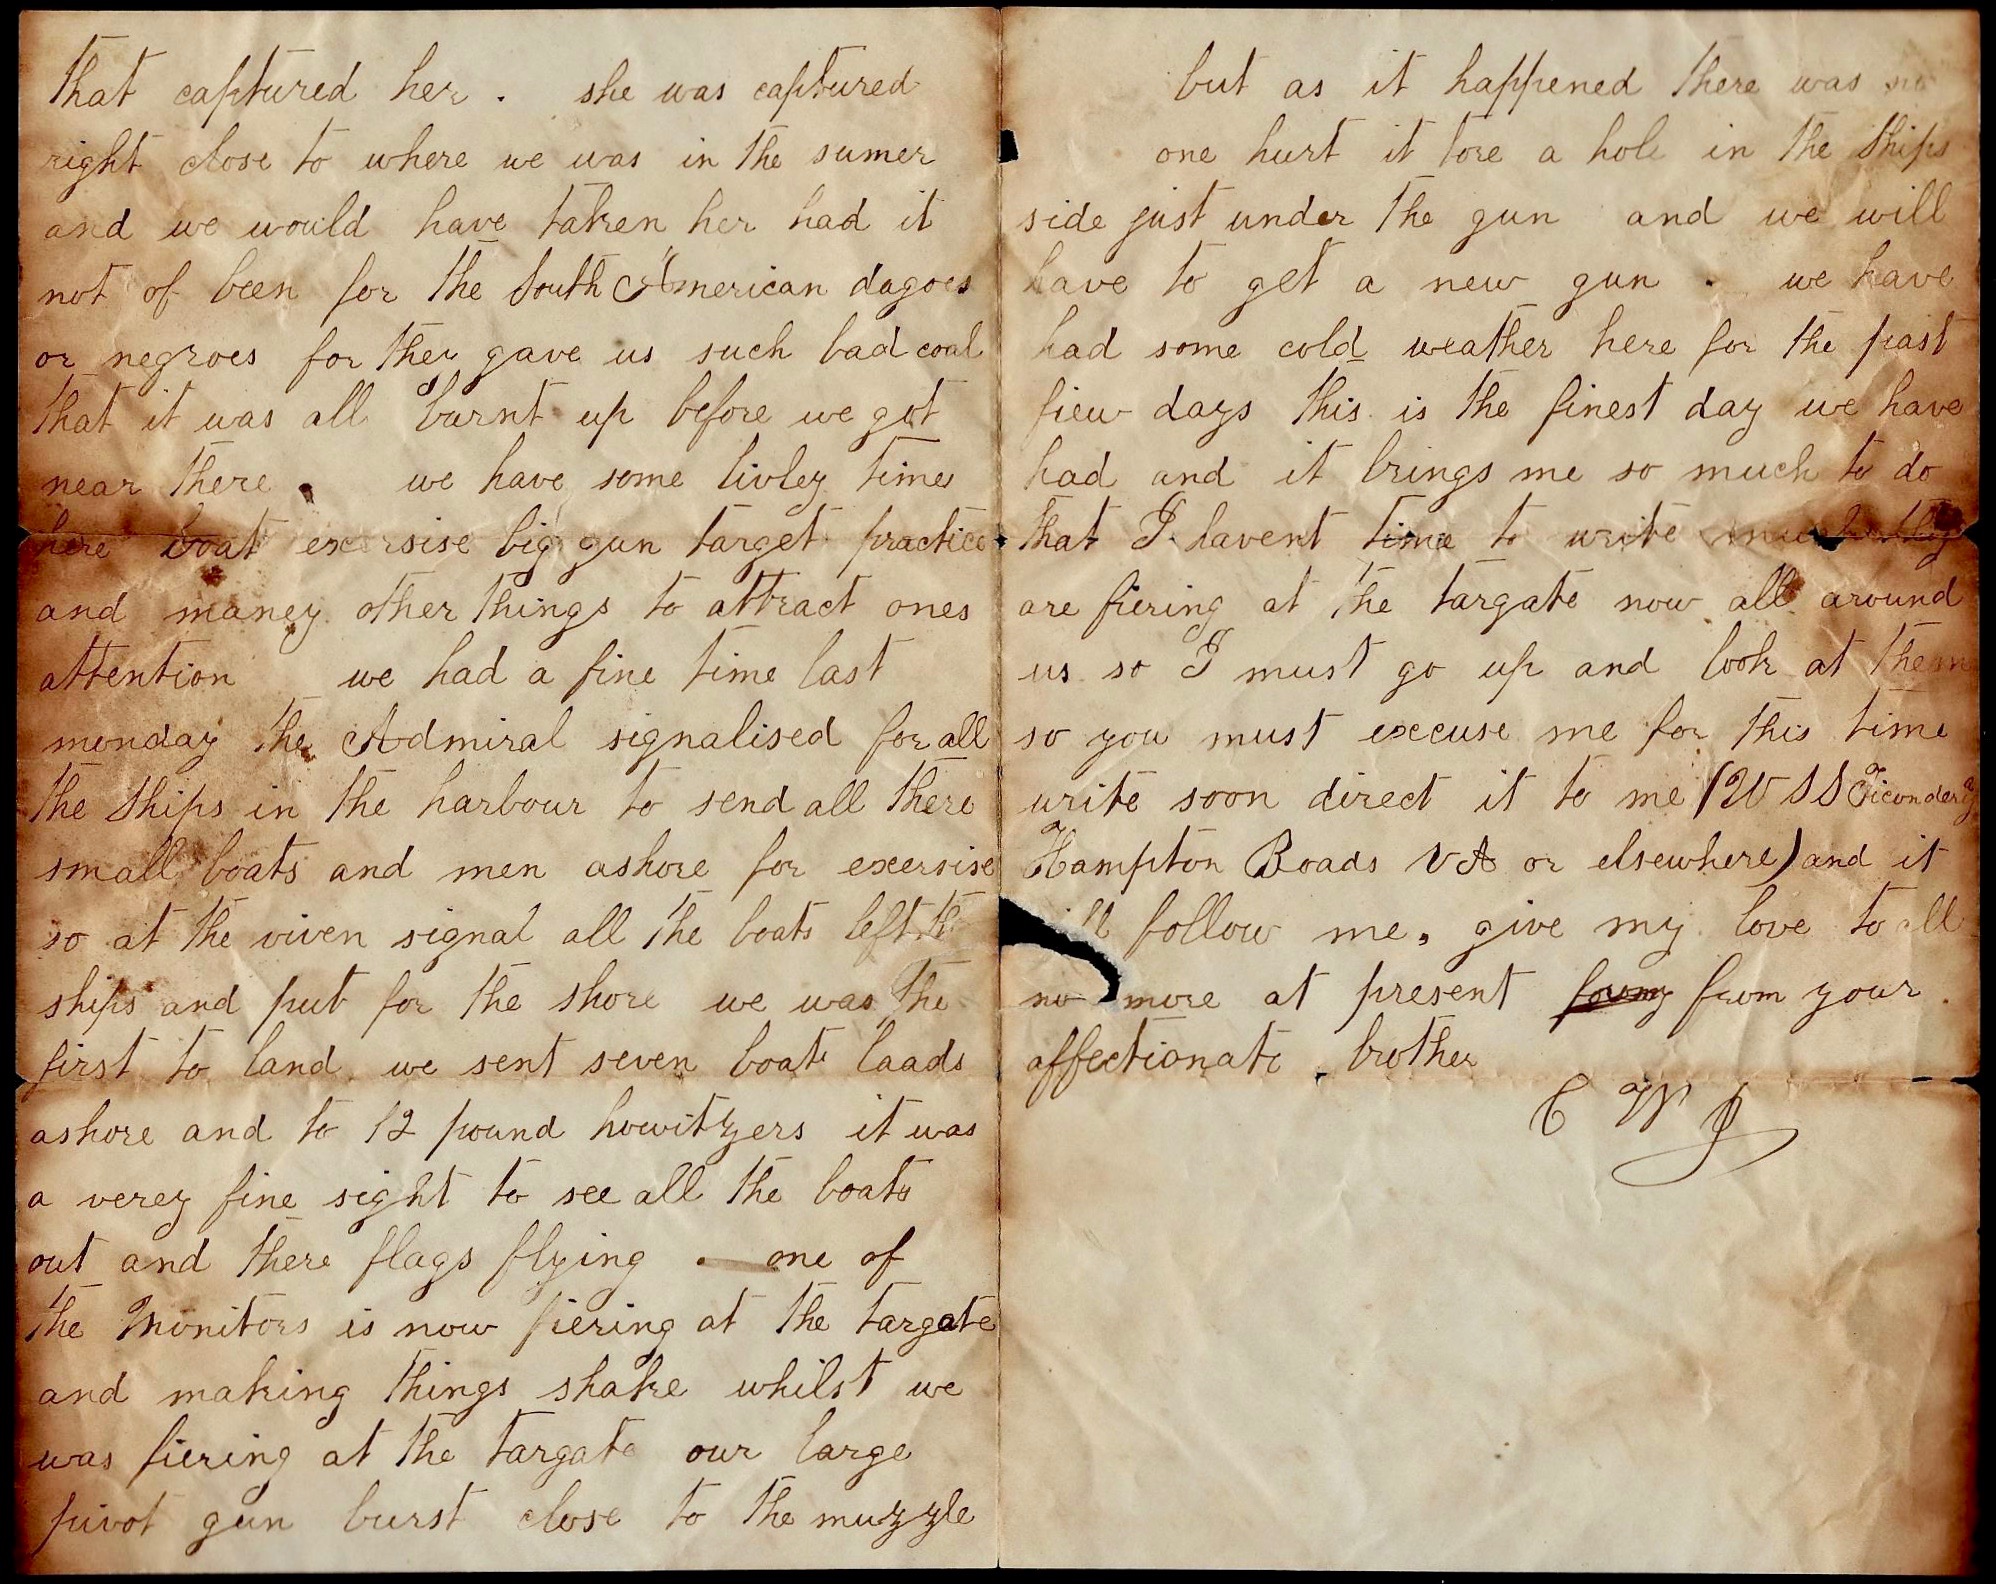 that captured her . she was captured
right close to where we was in the sumer
and we would have taken her had it
not of been for the South American dagoes
or negroes for they gave us such bad coal
that it was all burnt up before we got
near there . we have some livley times
here boat exersise big gun target practice
and maney other things to attract ones
attention we had a fine time last
monday the Admiral signalised for all
the ships in the harbour to send all there
small boats and men ashore for excersise
so at the viven signal all the boats left the
ships and put for the shore we was the
first to land we sent seven boat laads
ashore and to 12 pound howitzers it was
a verey fine sight to see all the boats
out and there flags flying . one of
the Monitors is now fiering at the targate
and making things shake whilst we
was fiering at the targate our large
pivot gun burst close to the muzzle
but as it happened there was no
one hurt it tore a hole in the ships
side just under the gun and we will
have to get a new gun . we have
had some cold weather here for the past
fiew days this is the finest day we have
had and it brings me so much to do
that I havent time to write
are fiering at the targate now all around
us so I must go up and look at them
so you must excuse me for this time
write soon direct it to me (U S S Ticonderoga
Hampton Roads VA or elsewhere) and it
will follow me, give my love to all
no more at present from your
affectionate brother
C W J